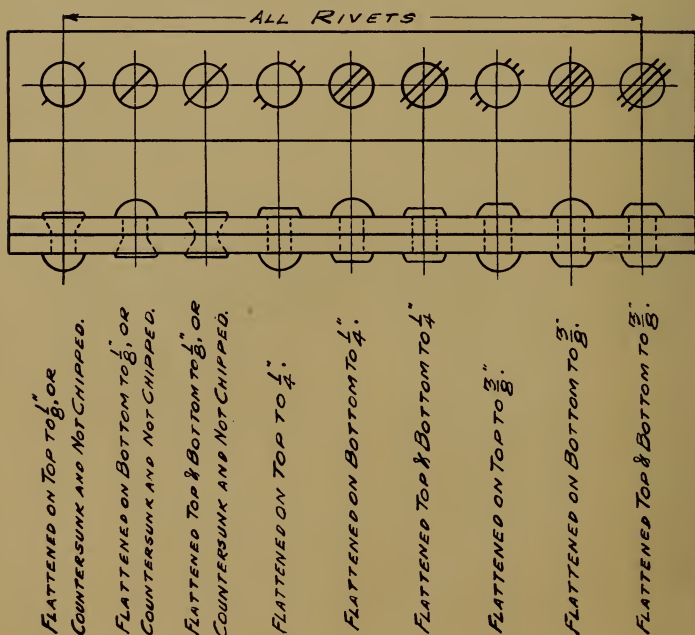 ALL RIVETS
FLATTENED ON TOP TO 1/8", OR
COUNTERSUNK AND NOT CHIPPED.
FLATTENED ON BOTTOM TO 1/8", OR
COUNTERSUNK AND NOT CHIPPED.
FLATTENED TOP & BOTTOM TO 1/8", OR
COUNTERSUNK AND NOT CHIPPED.
FLATTENED ON TOP TO 1/4".
FLATTENED ON BOTTOM TO 1/4".
FLATTENED TOP & BOTTOM TO 1/4".
FLATTENED ON TOP TO 3/8".
FLATTENED ON BOTTOM TO 3/8".
FLATTENED TOP & BOTTOM TO 3/8".